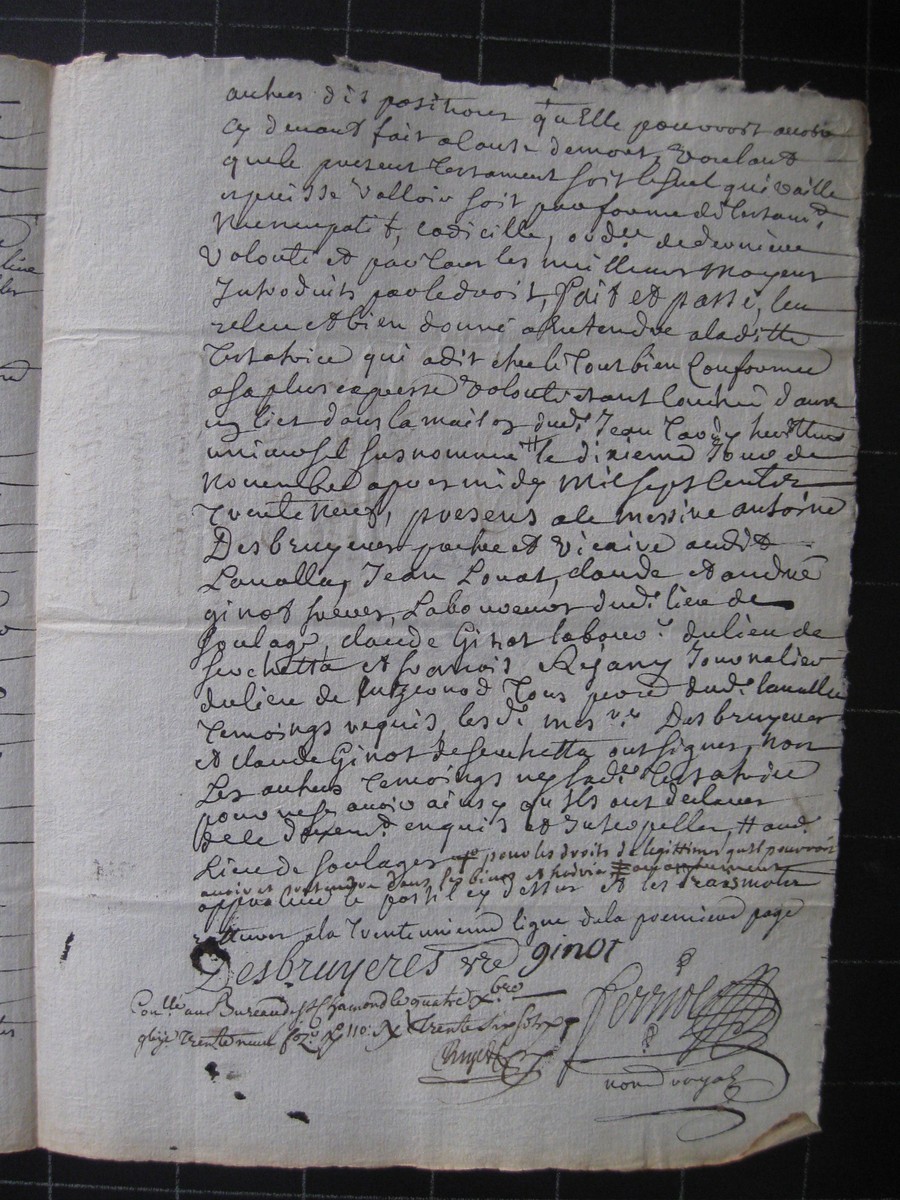 autres dispositions qu'Elle pourroit avoir
cy devant fait a cause de mort, voulant
que le present testament soit le seul qui vaille
et puisse valloir soit par forme de testamt.
nuncupatif, codicille, ou de derniere
volonté et par tous les meilleurs moyens
Introduits par le droit, fait et passé, leu
releu et bien donné a Entendre a laditte
testatrice qui a dit estre le tout bien Conforme
a sa plus expresse volonté estant couchée dans
un lict dans la maison dud. Jean heritier
universel susnommé # le dixieme Jour de
novembre apres midy mil sept cents
trente neuf, presens a ce messire antoine
Desbruyeres pretre et vicaire audit
Lavalla, Jean Louat, claude et andré
ginot freres, Laboureurs dud. lieu de
soulage, claude Ginot labour. du lieu de
et francois Journalier
du lieu de tous parr. dud. lavalla
temoings requis, lesd. mes.re Desbruyeres
et claude Ginot de ont signer, non
Les autres temoings ny lad. testatrice
pour ne scavoir ainsy qu'ils ont declarer
de ce enquis et Interpeller, # aud.
Lieu de soulages pour les droits de legittimes qu'il pourroit
avoir et pretendre dans les biens et
approuvé le postil cy dessus et les
a la trente unieme ligne de la premiere page
Desbruyeres vre ginot
Con.lle au Bureau de St Chamond le quatre xbre
trente neuf fo. 110. Rx trente six sols
not. royal